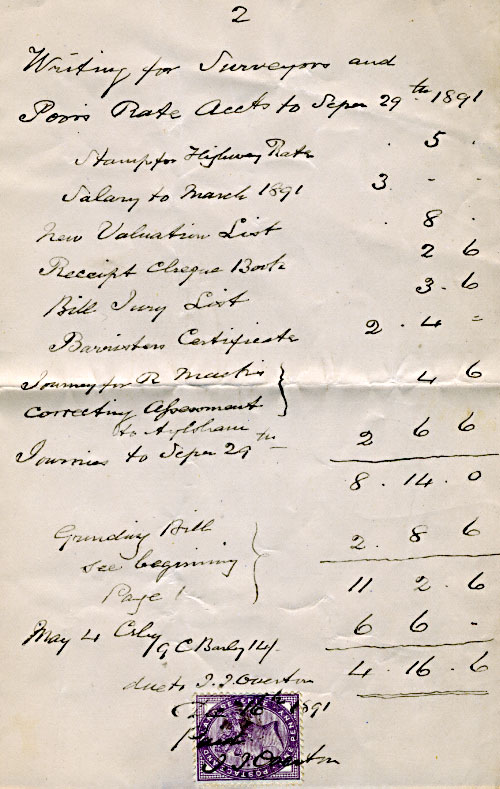 2
Writing for Surveyors and
Poors Rate Accts to Sepr 29th 1891
Stamp for Highway Rate . 5 .
Salary to March 1891 3 - -
New Valuation List . 8 .
Receipt Cheque Book 2 6
Bill Jury List 3 . 6
Barristers Certificate 2 . 4 =
Journey for R
correcting Assessment 4 6
to Aylsham
Journies to Sepr 29th 2 6 6
8 . 14 . 0
Grinding Bill
see beginning 2 . 8 6
Page 1 11 2 6
May 4 By 9 C Barly 14/ 6 6 -
due to J.J. Overton 4 . 16 . 6
1891
Paid
J.J. Overton
POSTAGE AND INLAND REVENUE
ONE PENNY